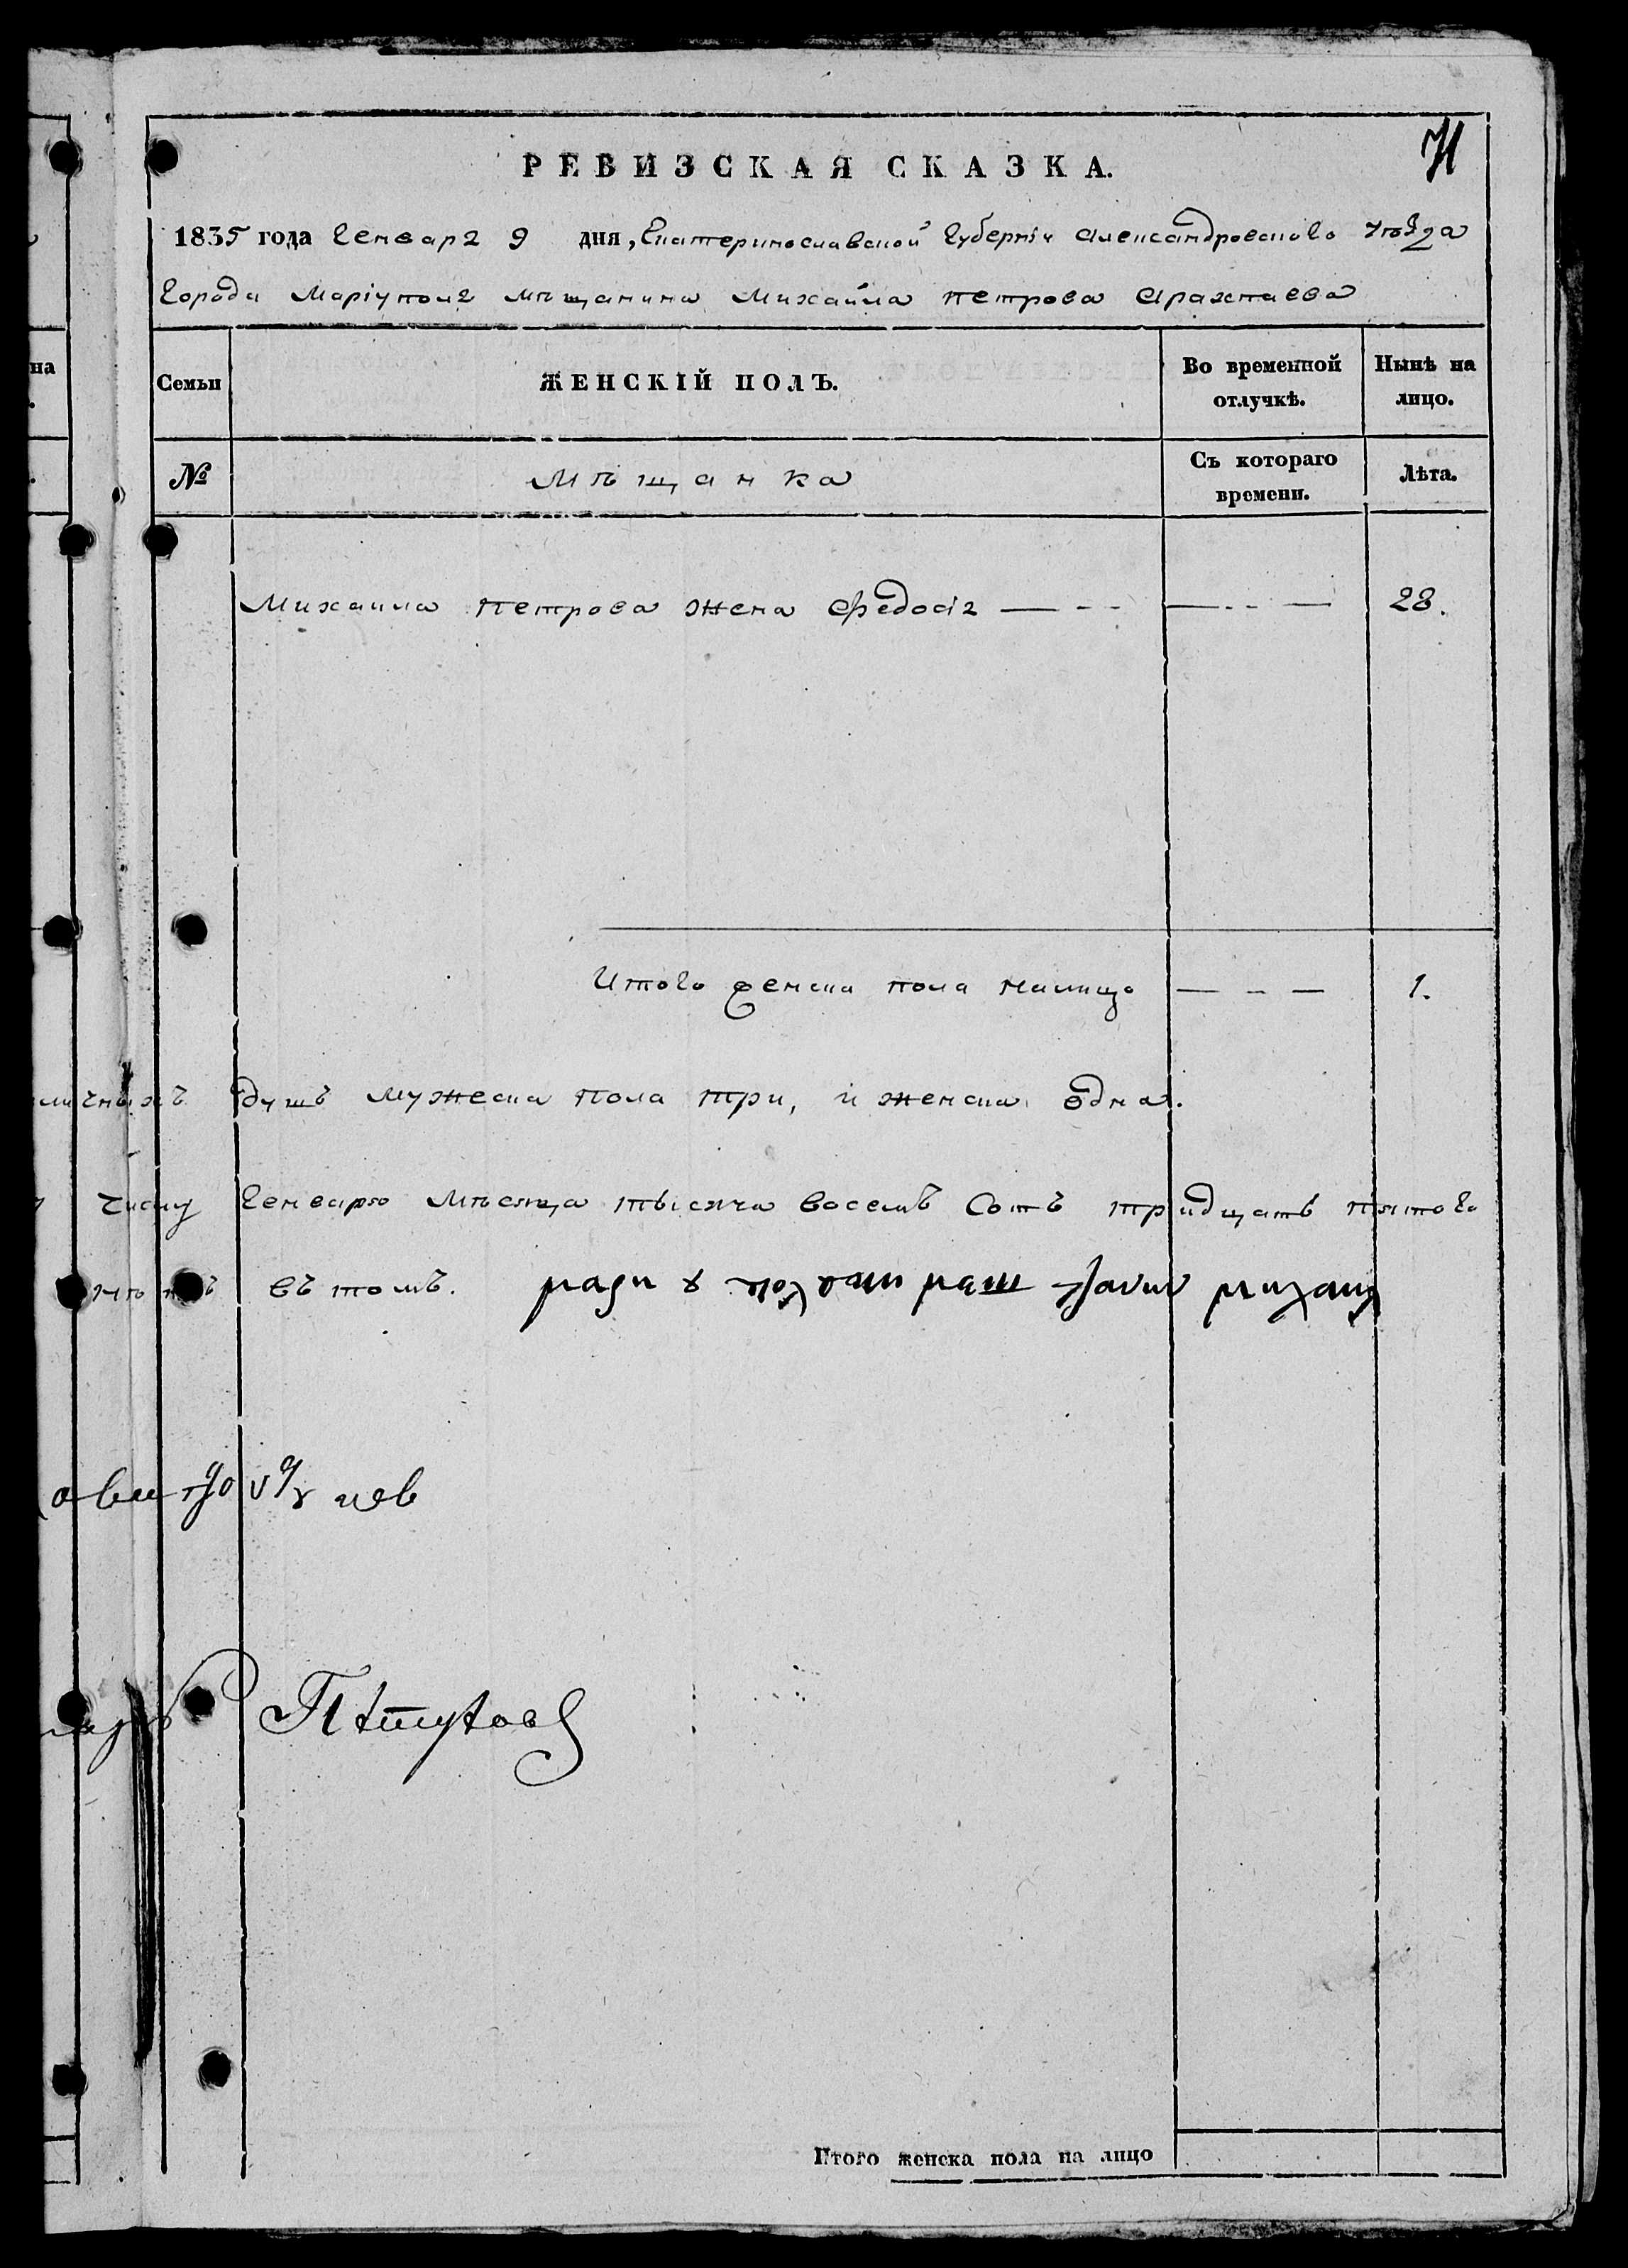 71
РЕВИЗСКАЯ СКАЗКА.
1835 года Генваря 9 дня, Екатеринославской Губерніи Александровского уѣзда
Города Маріуполя мѣщанина Михайла Петрова
на
Семьи
ЖЕНСКІЙ ПОЛЪ.
Во временной отлучкѣ.
Нынѣ на лицо.
№
Мѣщанка
Съ котораго времени.
Лѣта.
Михаила Петрова жена Федосія — - - — - - — 28.
Итого женска пола налицо — - — 1.
душъ мужеска пола три, и женска одна.
числу Генваря мѣсяца тысяча восемъ сотъ тридцать пятого
въ томъ.
Итого женска пола на лицо